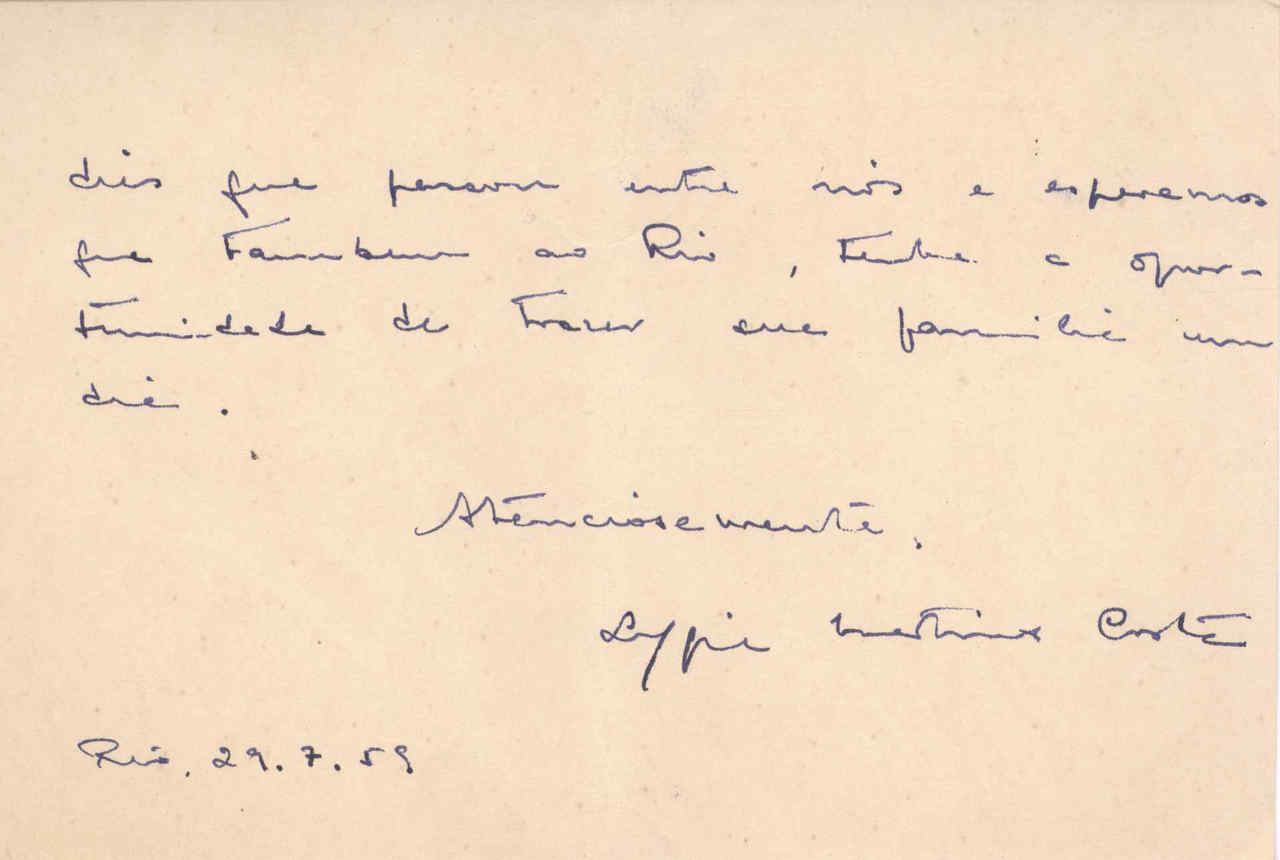 dias que passou entre nós e esperamos
que tambem ao Rio, tenha a opor-
tunidade de trazer sua familia um
dia.
Atenciosamente,
Martins Costa
Rio, 29.7.59